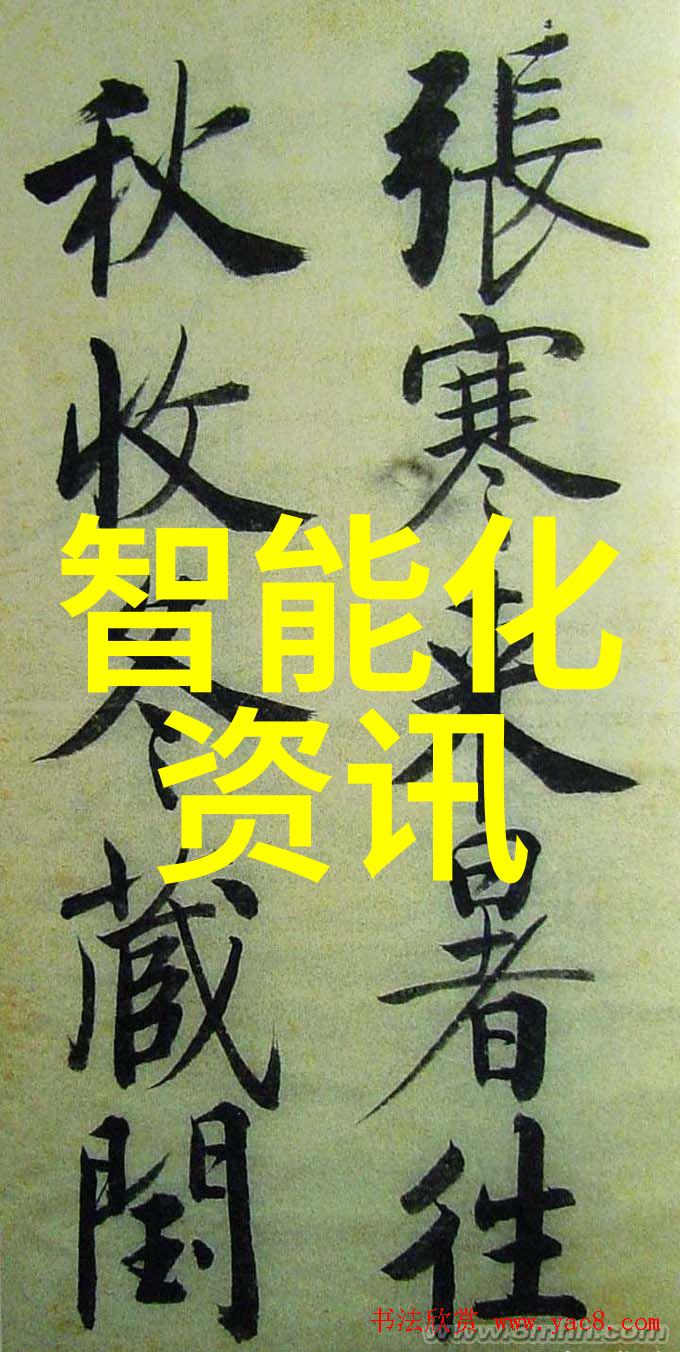 張寒来暑往
秋收冬蔵閏
智能化
资讯
书法欣赏 www.yac8.com